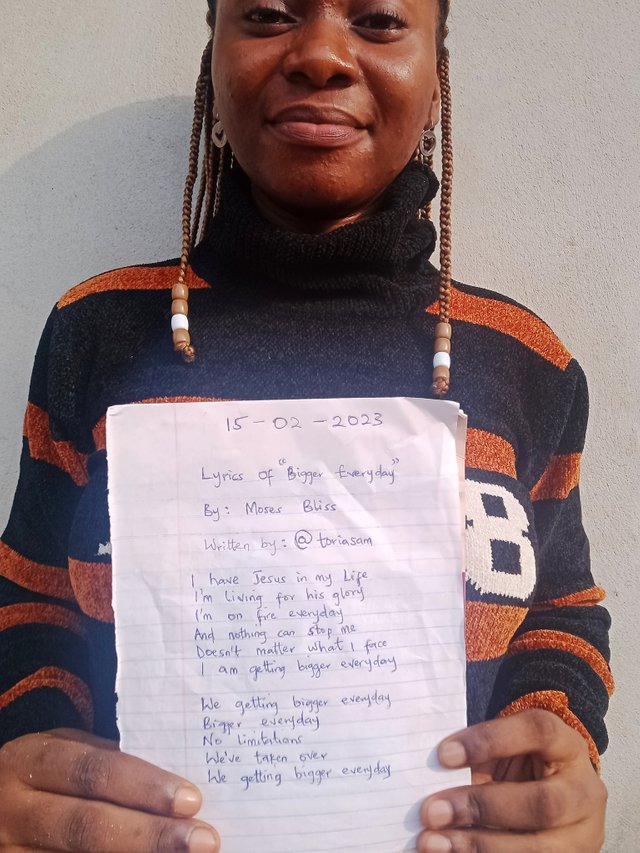 15-02-2023
Lyrics of "Bigger Everyday"
By: Moses Bliss
Written by: @toriasam
I have Jesus in my Life
I'm living for his glory
I'm on fire everyday
And nothing can stop me
Doesn't matter what I face
I am getting bigger everyday
We getting bigger everyday
Bigger everyday
No limitations
We've taken over
We getting bigger everyday
B